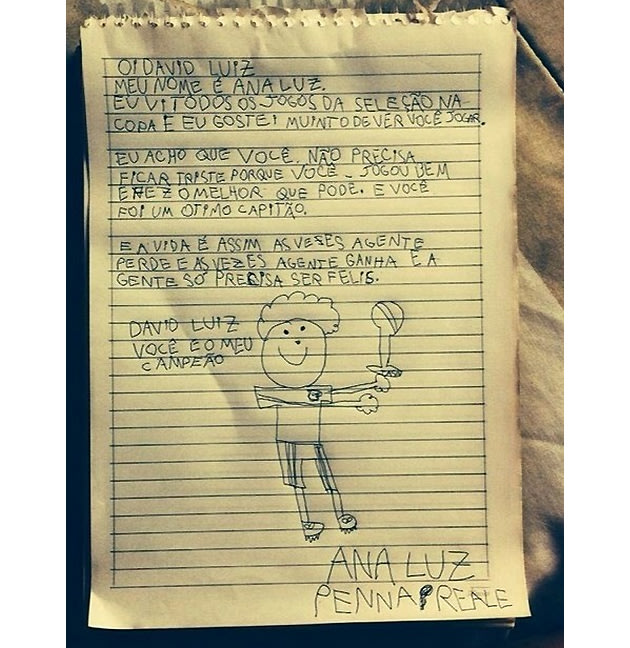 OI DAVID LUIZ
MEU NOME É ANA LUZ.
EU VI TODOS OS JOGOS DA SELEÇÃO NA
COPA E EU GOSTEI MUINTO DE VER VOCÊ JOGAR.
EU ACHO QUE VOCÊ, NÃO PRECISA
FICAR TRISTE PORQUE VOCÊ - JOGOU BEM
E FEZ O MELHOR QUE PODE. E VOCÊ
FOI UM OTIMO CAPITÃO.
E A VIDA É ASSIM AS VESES AGENTE
PERDE E AS VEZES AGENTE GANHA E A
GENTE SÓ PRECISA SER FELIS.
DAVID LUIZ
VOCÊ E O MEU
CAMPEÃO
ANA LUZ
PENNA REALE